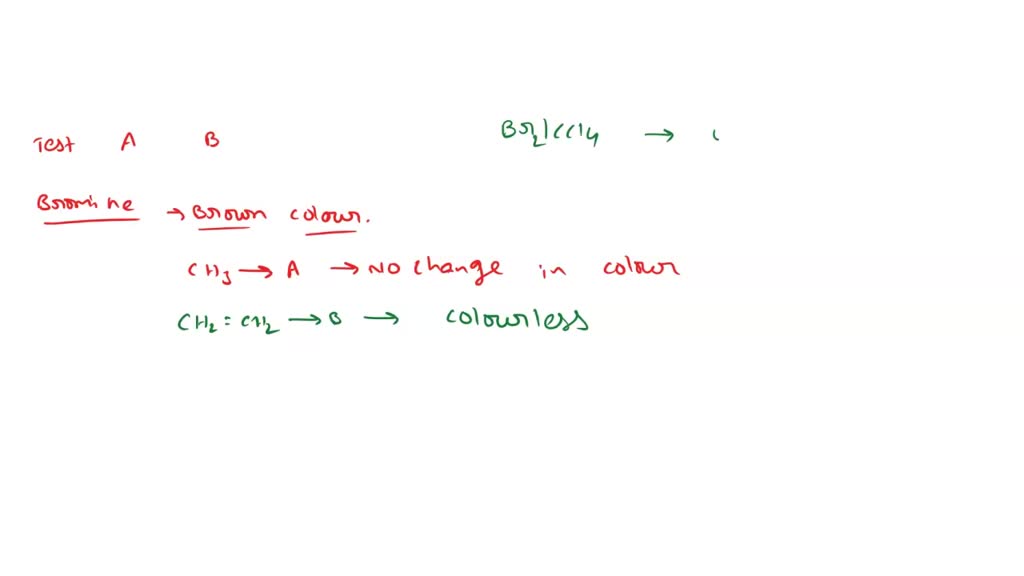 Test A B
Br2/CCl4 →
Bromine → Brown colour.
CH3 → A → No change in colour
CH2 = CH2 → B → colourless